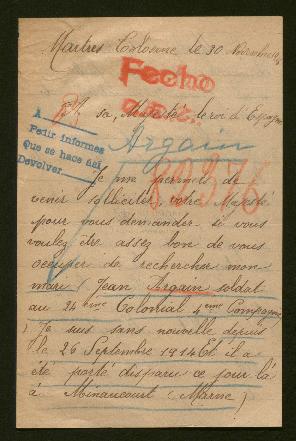 Martres Tolosane le 30 Novembre
Fecho
A sa Majesté le roi d'Espagne
A
Pedir informes
Que se hace así
Devolver
Argain
Je me permets de
venir solliciter votre Majesté
pour vous demander si vous
voulez être assez bon de vous
occuper de rechercher mon
mari, Jean Argain soldat
au 24ème Colonial 4ème Compagnie
Je suis sans nouvelle depuis
le 26 Septembre 1914 Et il a
été porté disparu ce jour là
à Minaucourt (Marne)